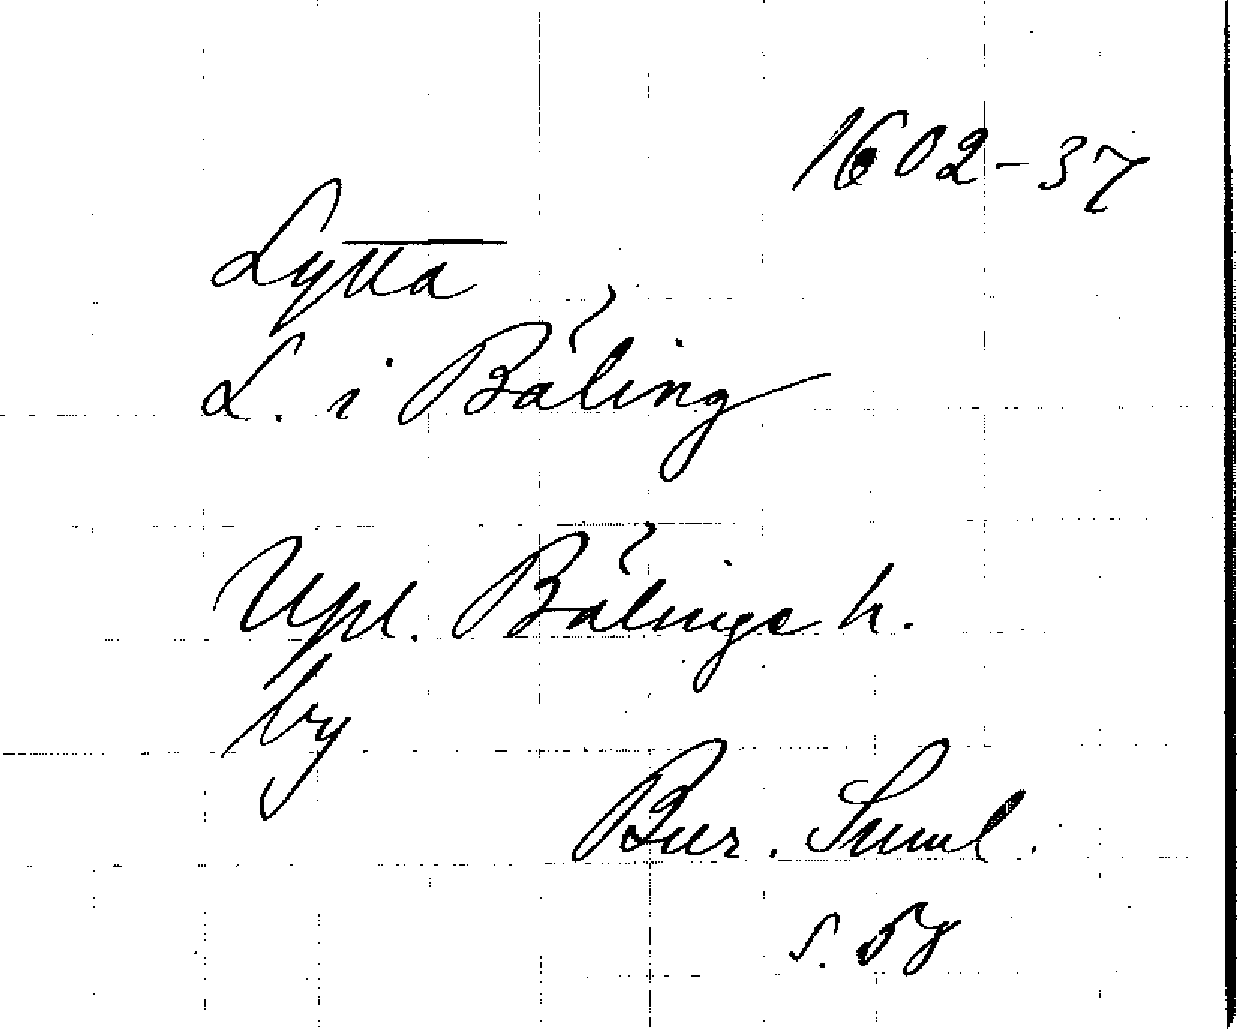 1602-37
Lytta
L. i Båling
Upl. Bålinge h.
by
Bur. Suml.
s. 58